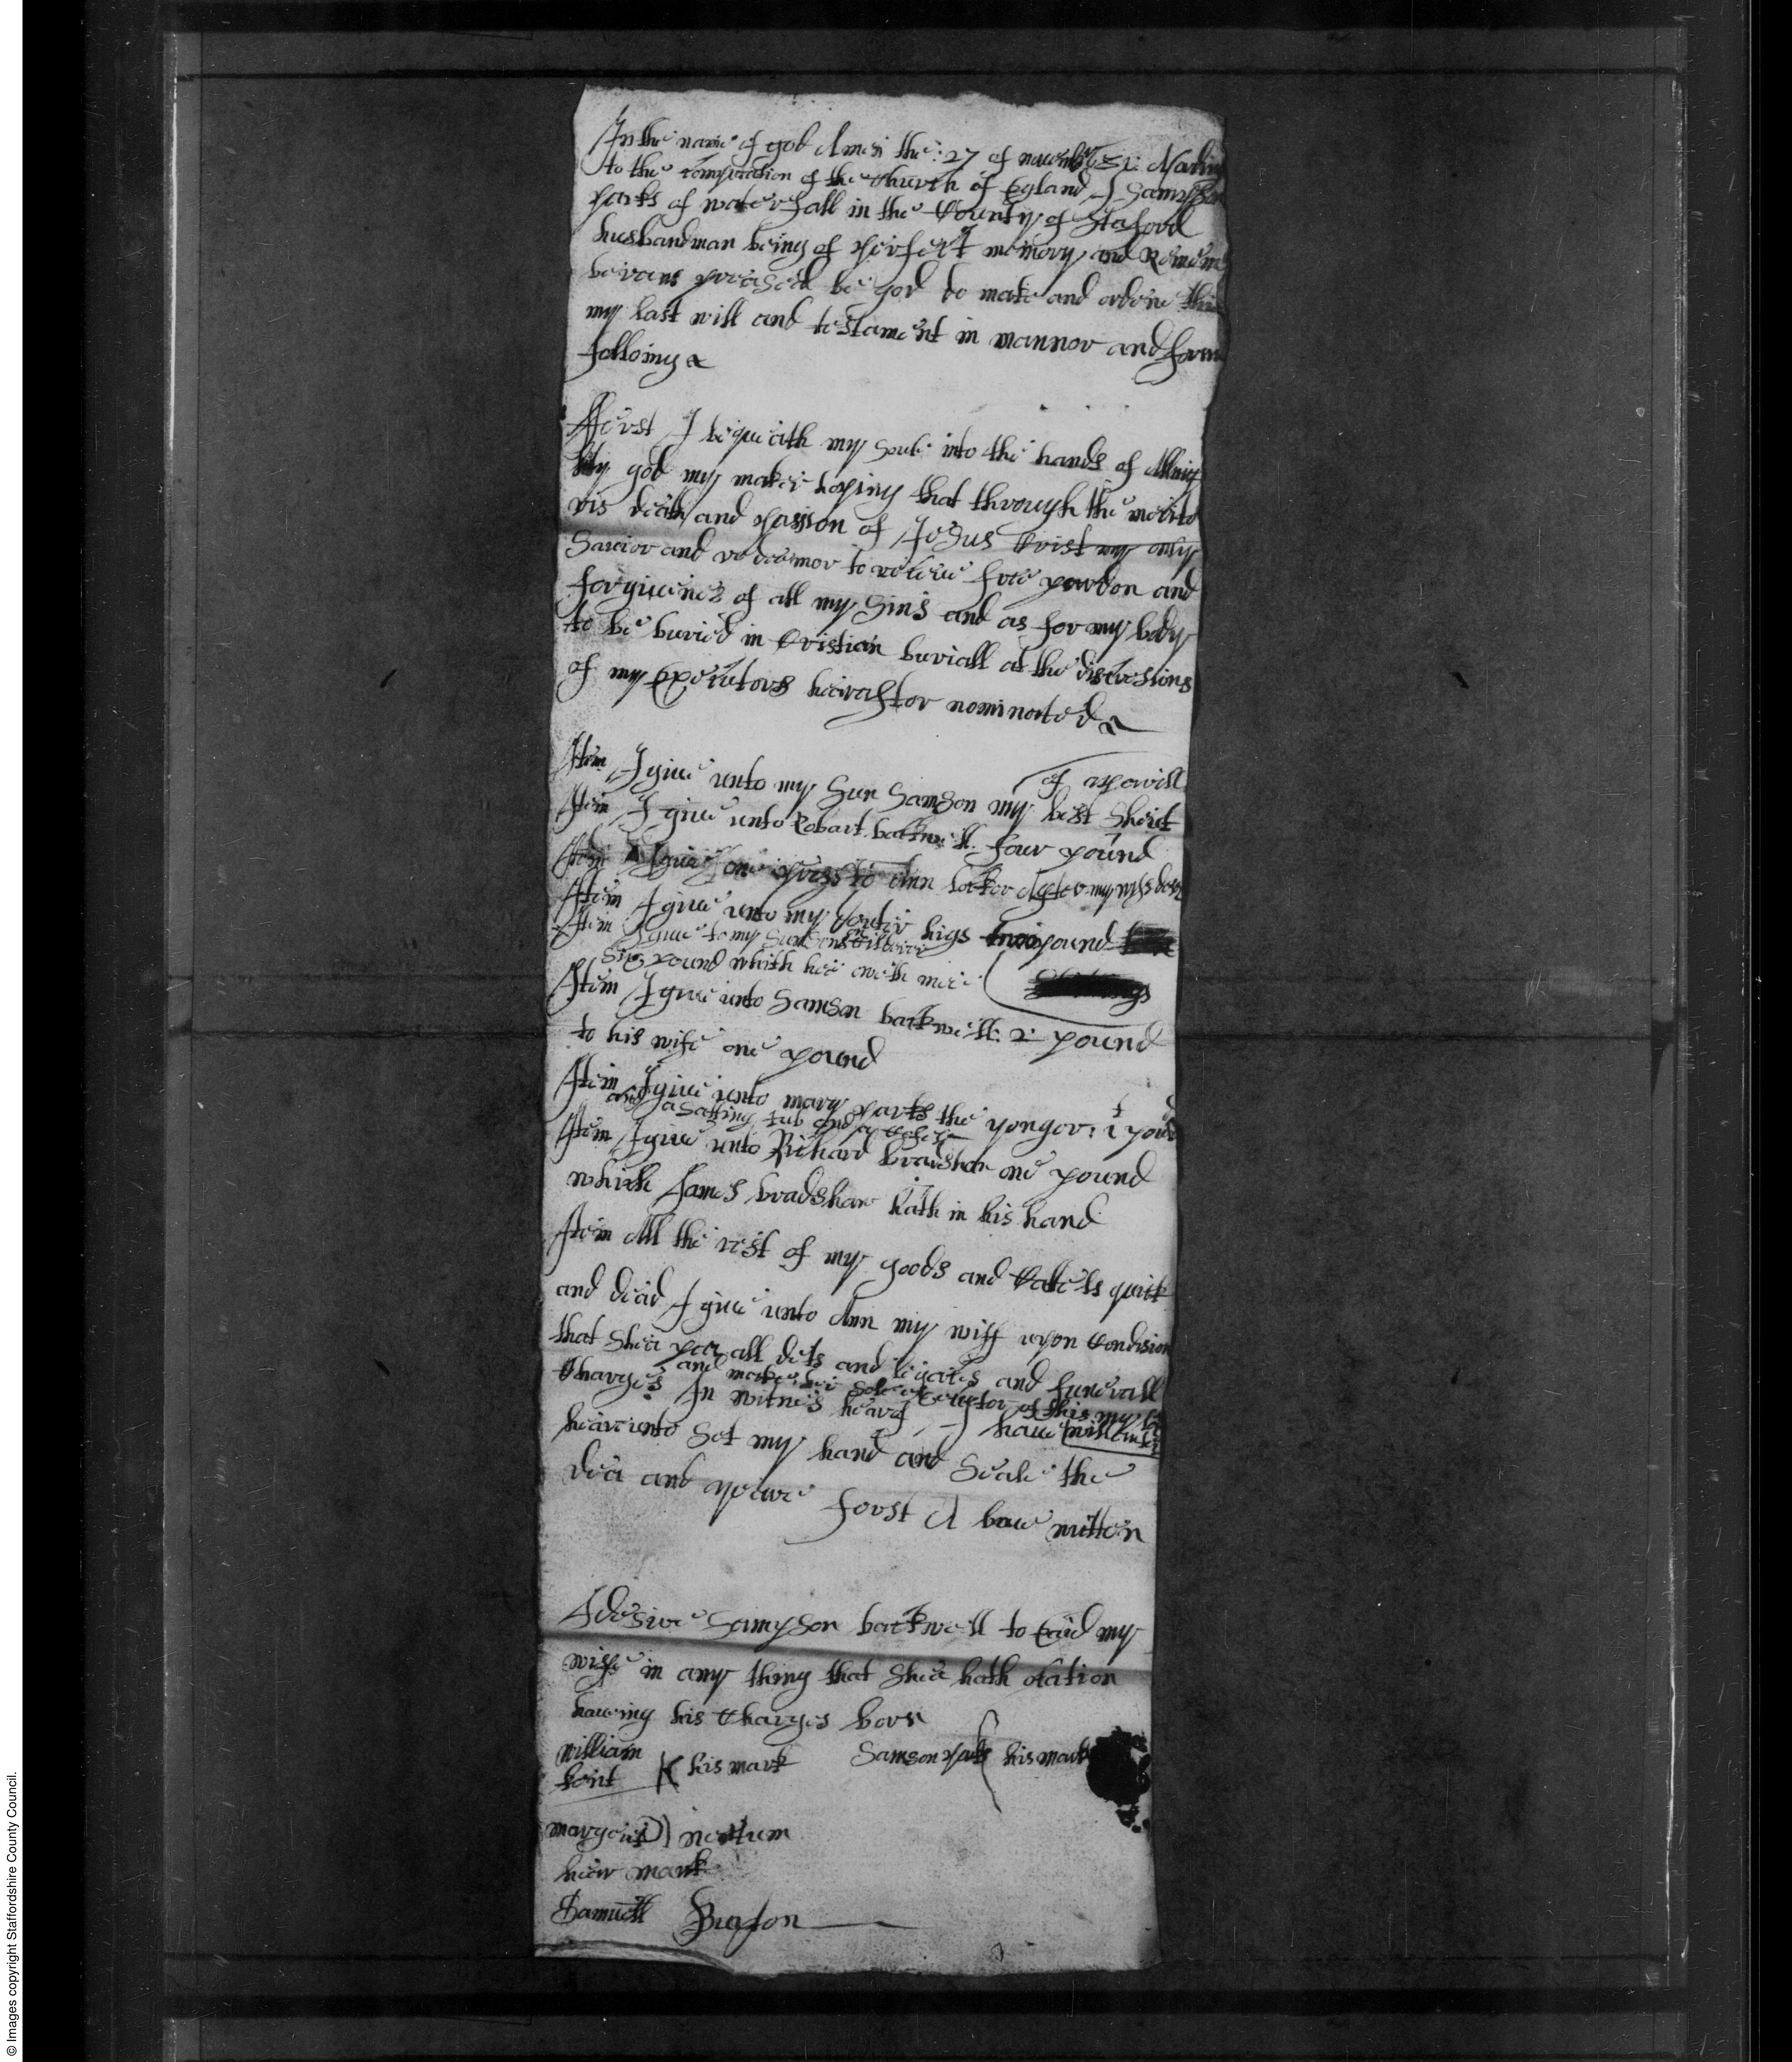 In the name of god Amen the: 27 of
to the computation of the Church of Egland I Sampson
parks of waterfall in the County of Staford
husbandman being of perfect memory and Remem
berans preased be god do make and ordene this
my last will and testament in mannor and form
folloing &
Fferst I bequeath my soule into the hands of Almig
hty god my maker hoping that through the merito
ris death and passion of Jesus Crist my only
Saucior and redeemor to receiue free pardon and
forgiuenes of all my Sins and as for my body
to be buried in Cristian buriall at the discresions
of my Executors heirafter nominated
of aparill
Item I giue unto my Sun Samson my best Sheirt
Item I giue unto Robart backwell four pound
Item I giue one press to Ann after my wifs
Item I giue unto my higs pound
Item I giue to my
Six pound which hee oweth mee
Item I giue unto Samson backwell: 2 pound
to his wife one pound
Item I giue unto mary parks the yongor: 1 pound
and a salting tub and a
Item I giue unto Richard bradshaw one pound
which James bradshaw hath in his hand
Item All the rest of my goods and Catels quick
and dead I giue unto Ann my wiff upon Condision
that Shea pay all dets and legaces and funerall
and make her Sole executor of this my
Charges In witnes heare I haue will
heareunto Set my hand and Seale the
dea and yeare forst A boue written
I desire Sampson backwell to my
wife in any thing that Shee hath ocation
haueing his Charges born
william his mark Samson parks his mark
kent
margeit nectum
hear mark
Samuell Buxton
© Images copyright Staffordshire County Council.